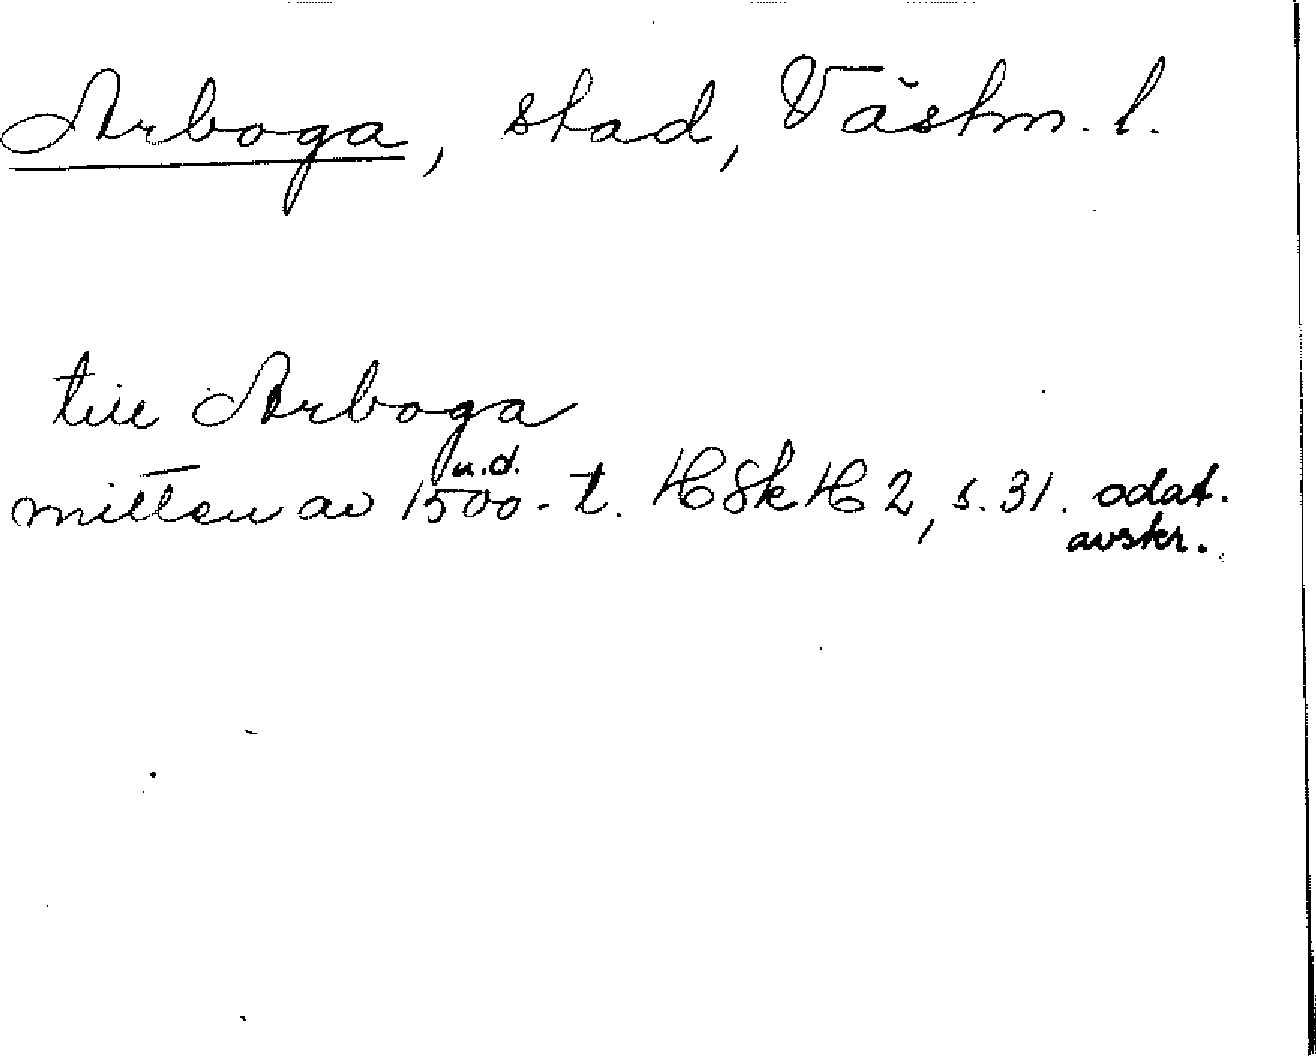 Arboga, stad, Västm. l.
till Arboga
u.d.
mitten av 1500-t. HSkH 2, s. 31. odat.
avskr.